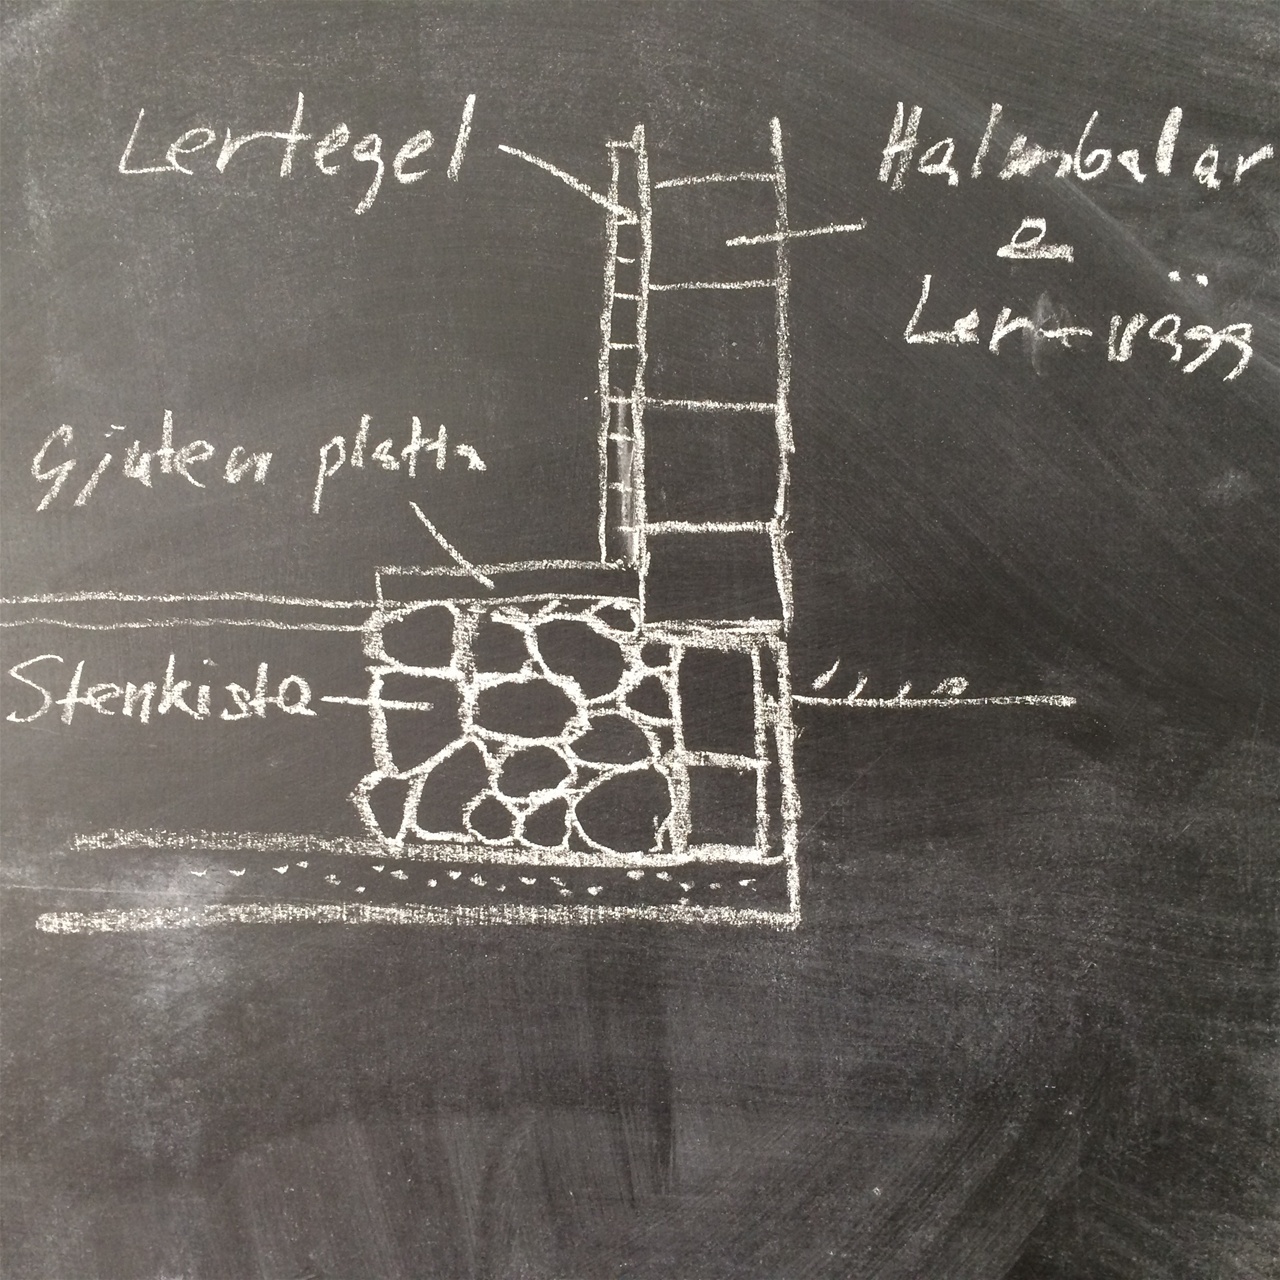 Lertegel
Halmbalar
&
Ler-vägg
Gjuten platta
Stenkista